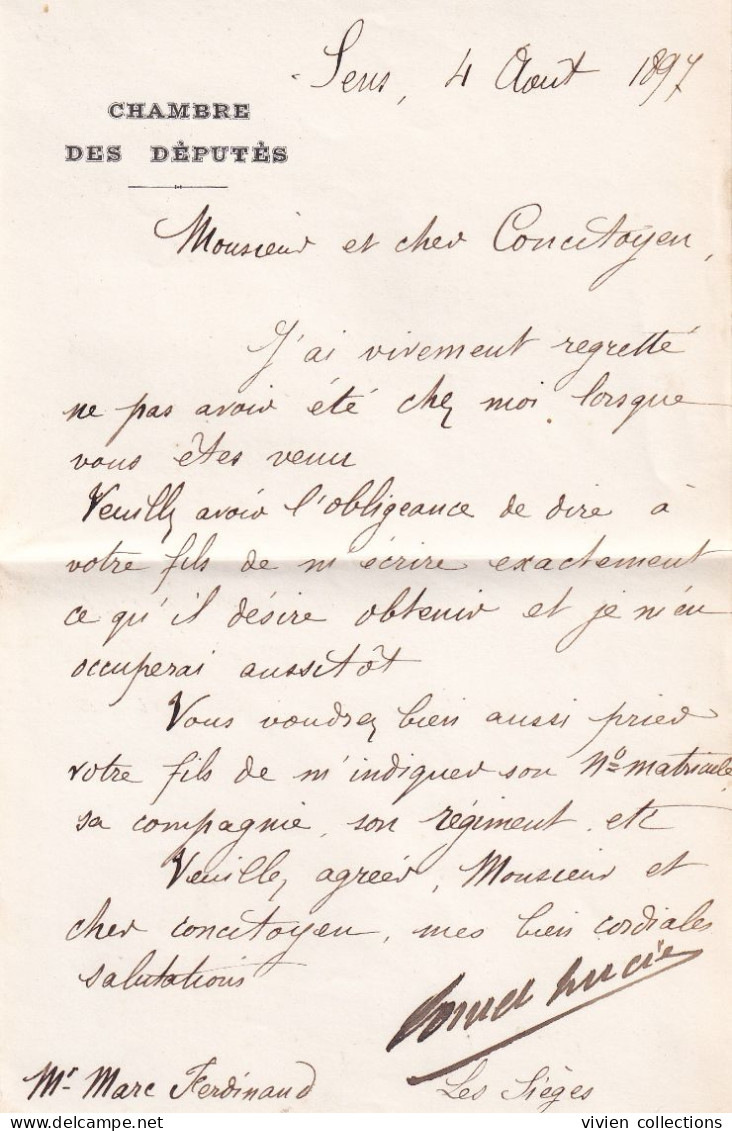 Sens, 4 Août 1897
CHAMBRE
DES DÉPUTÉS
Monsieur et cher Concitoyen,
J'ai vivement regretté
ne pas avoir été chez moi lorsque
vous êtes venu
Veuillez avoir l'obligeance de dire à
votre fils de m'écrire exactement
ce qu'il désire obtenir et je m'en
occuperai aussitôt
Vous voudrez bien aussi prier
votre fils de m'indiquer son Nº matricule,
sa compagnie, son régiment, etc
Veuillez agréer, Monsieur et
cher concitoyen, mes bien cordiales
salutations
Cornet Lucien
Mr Marc Ferdinand
Les Sièges
vivien collections